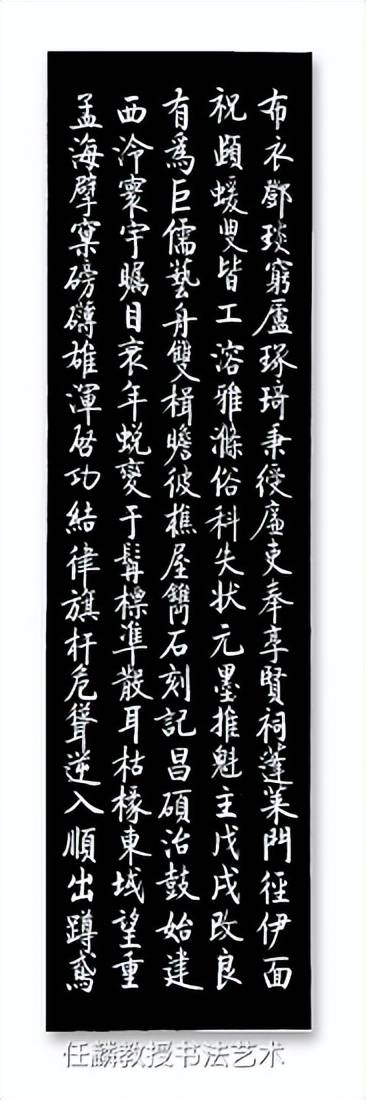 布衣鄧琰窮廬琢琦秉绶廉吏奉享賢祠蓬莱門徑伊面
祝頗蝯叟皆工溶雅滌俗科失状元墨推魁主戊戌改良
有為巨儒藝舟雙楫瞻彼樵屋鐫石刻記昌碩治鼓始建
西泠寰宇矚目衰年蜕變于髯標準散耳枯椽東域望重
孟海擘窠磅礴雄渾启功結律旗杆危聳逆入順出蹲鸢
任麟教授书法艺术